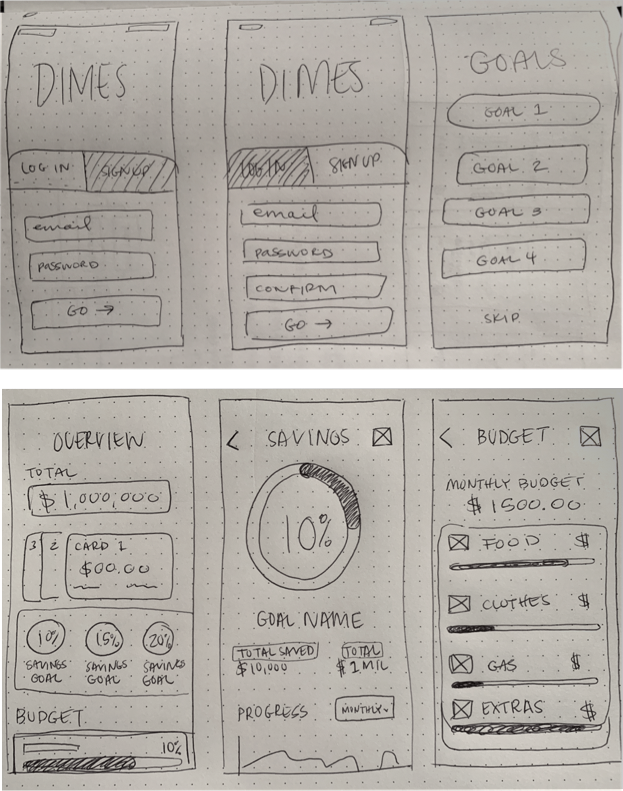 DIMES
LOG IN SIGNUP
email
PASSWORD
GO →
DIMES
LOG IN SIGN UP
email
PASSWORD
CONFIRM
GO →
GOALS
GOAL 1
GOAL 2
GOAL 3
GOAL 4
SKIP
OVERVIEW
TOTAL
$1,000,000
3 2 CARD 1
$00.00
10% 15% 20%
SAVINGS SAVINGS SAVINGS
GOAL GOAL GOAL
BUDGET
10%
< SAVINGS
10%
GOAL NAME
TOTAL SAVED TOTAL
$10,000 $1 MIL
PROGRESS MONTHLY
< BUDGET
MONTHLY BUDGET
$1500.00
FOOD $
CLOTHES $
GAS $
EXTRAS $